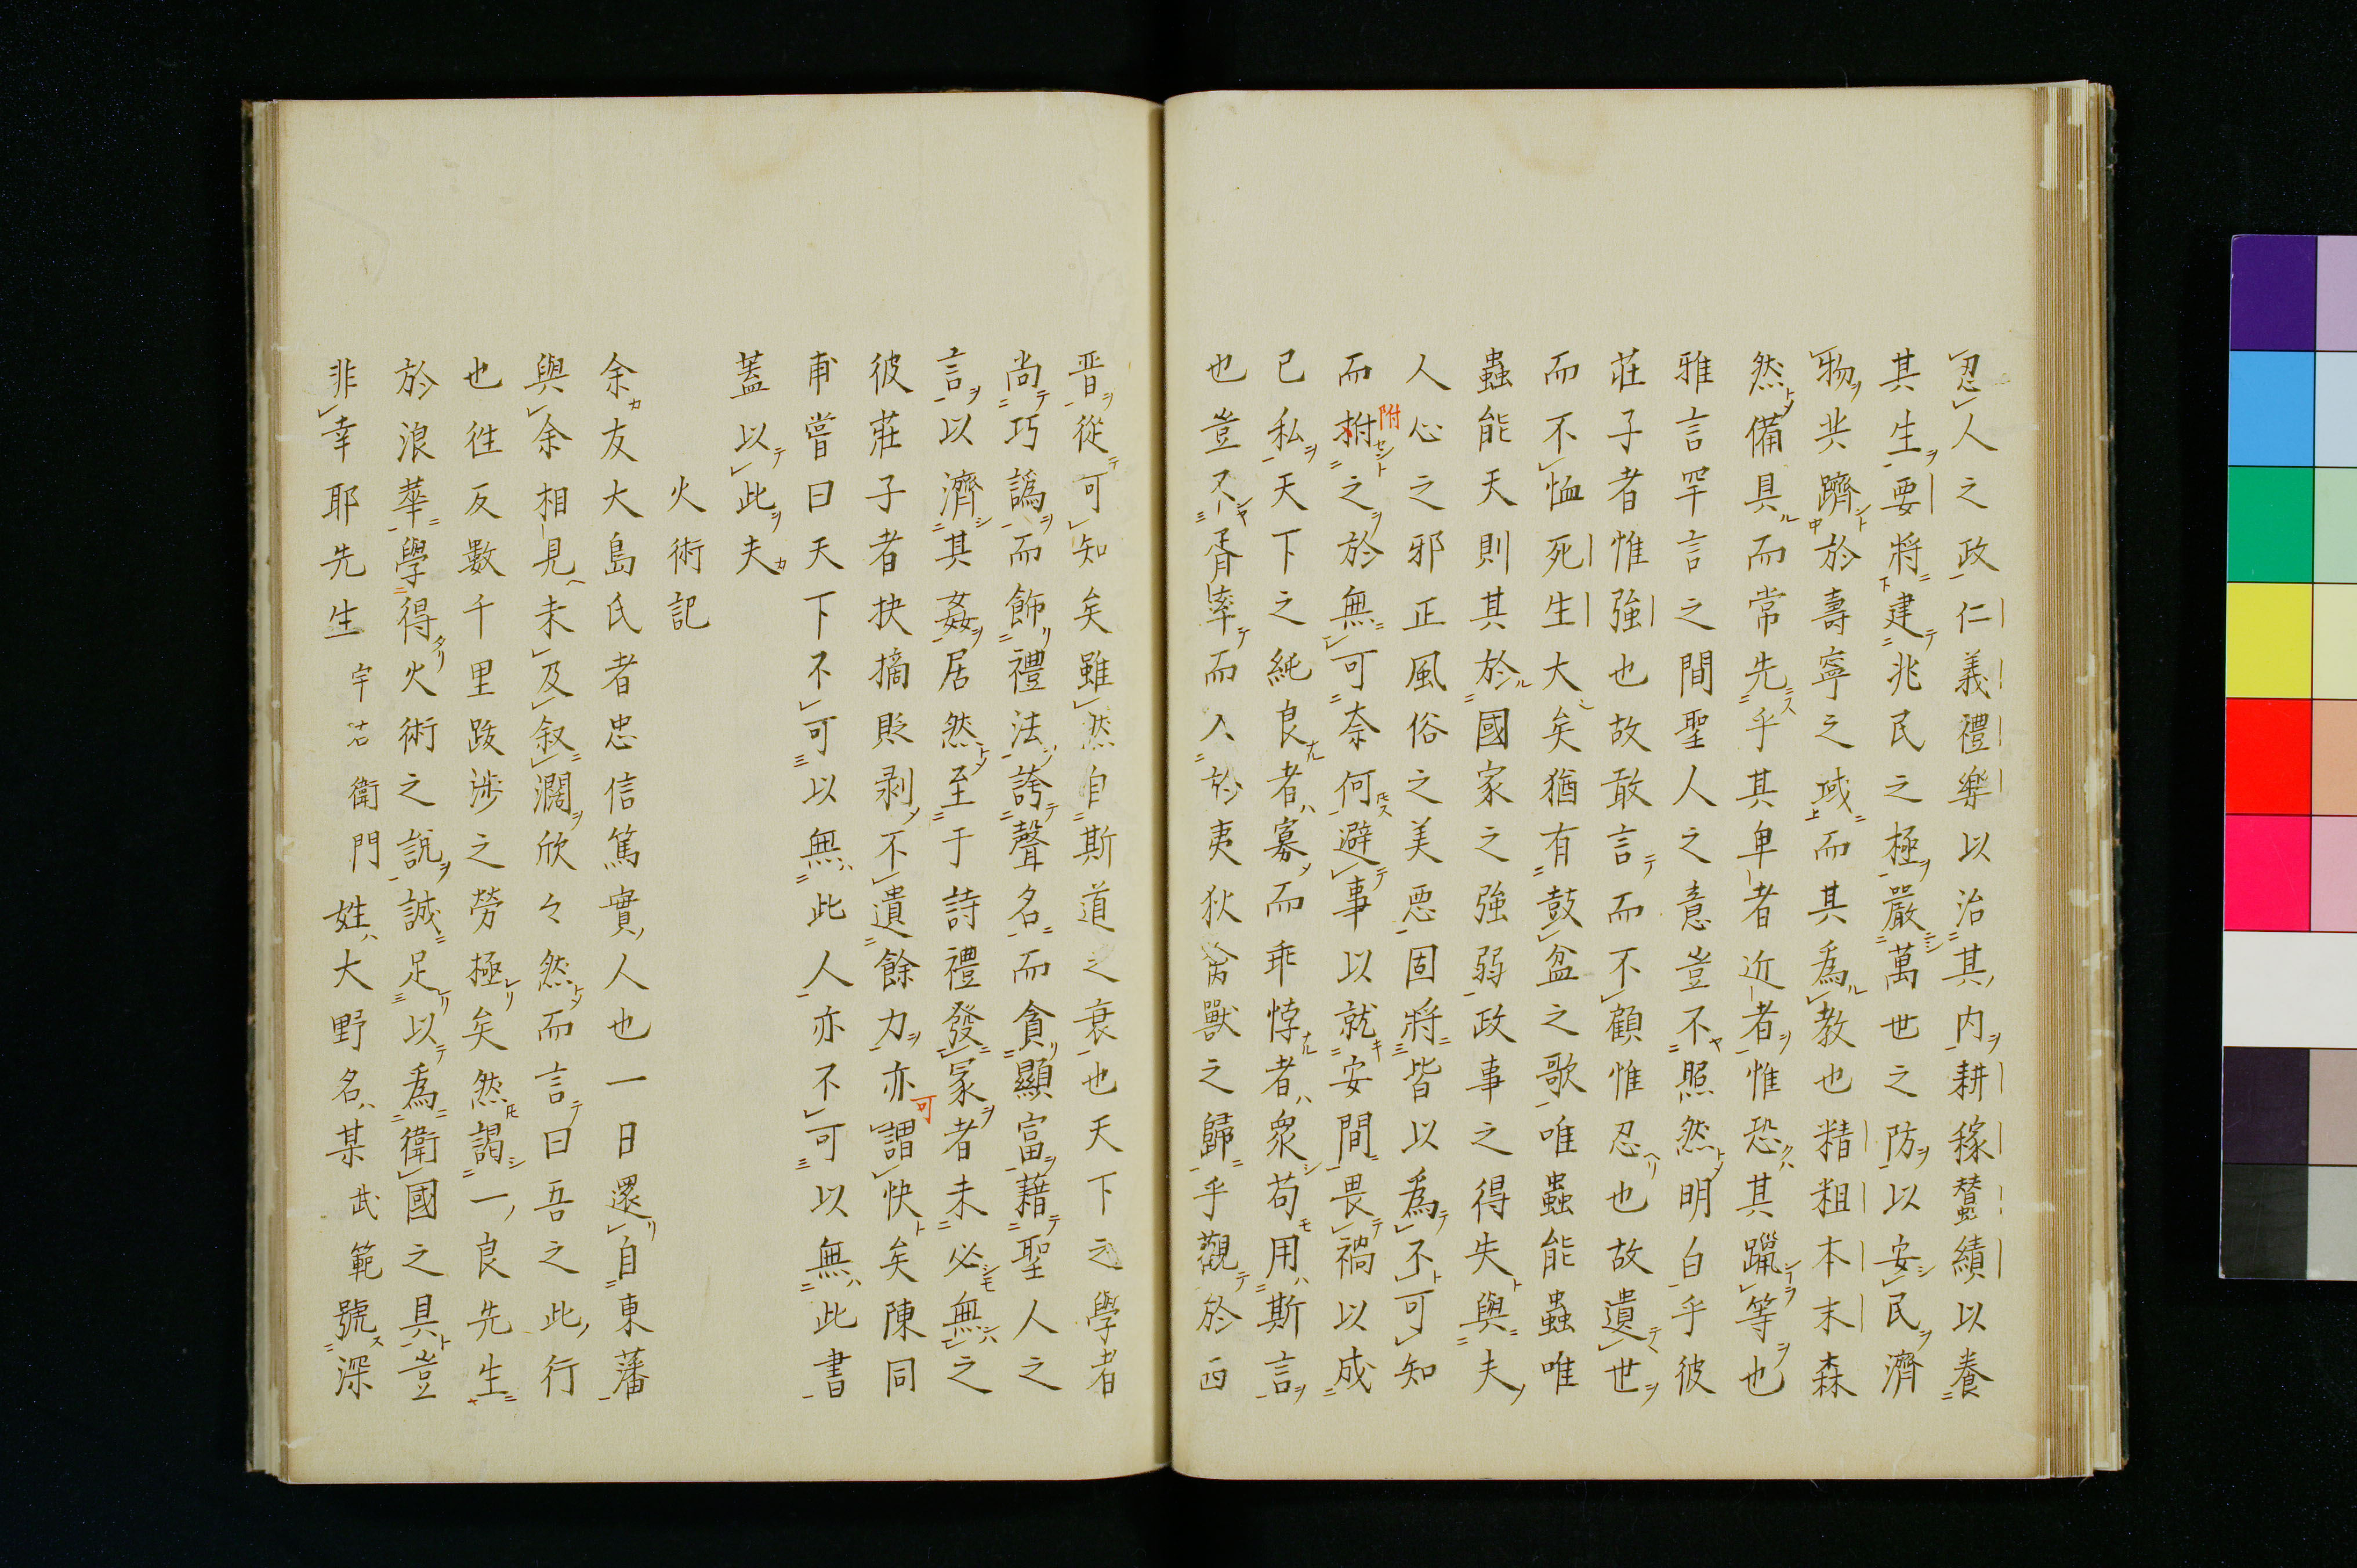 忍人之政仁義禮樂以治其内耕稼蠶績以養
其生要將建兆民之極嚴萬世之防以安民濟
物共躋於壽寧之域而其爲教也精粗本末森
然備具而常先乎其卑者近者惟恐其躐等也
雅言罕言之間聖人之意豈不照然明白乎彼
莊子者惟強也故敢言而不顧惟忍也故遺世
而不恤死生大矣猶有鼓盆之歌唯蟲能蟲唯
蟲能天則其於國家之強弱政事之得失與夫
人心之邪正風俗之美惡固將皆以爲不可知
而拊之於無可奈何避事以就安間畏禍以成
已私天下之純良者寡而乖悖者衆苟用斯言
也豈不胥率而入於夷狄禽獸之歸乎觀於西
晋從可知矣雖然自斯道之衰也天下之學者
尚巧譌而飾禮法誇聲名而貪顯富藉聖人之
言以濟其姦居然至于詩禮發冢者未必無之
彼莊子者抉摘貶剥不遺餘力亦謂快矣陳同
甫嘗曰天下不可以無此人亦不可以無此書
蓋以此夫
火術記
余友大島氏者忠信篤實人也一日還自東藩
與余相見未及叙濶欣々然而言曰吾之此行
也往反數千里跋渉之勞極矣然謁一良先生
於浪華學得火術之說誠足以爲衛國之具豈
非幸耶先生宇右衛門姓大野名某武範號深